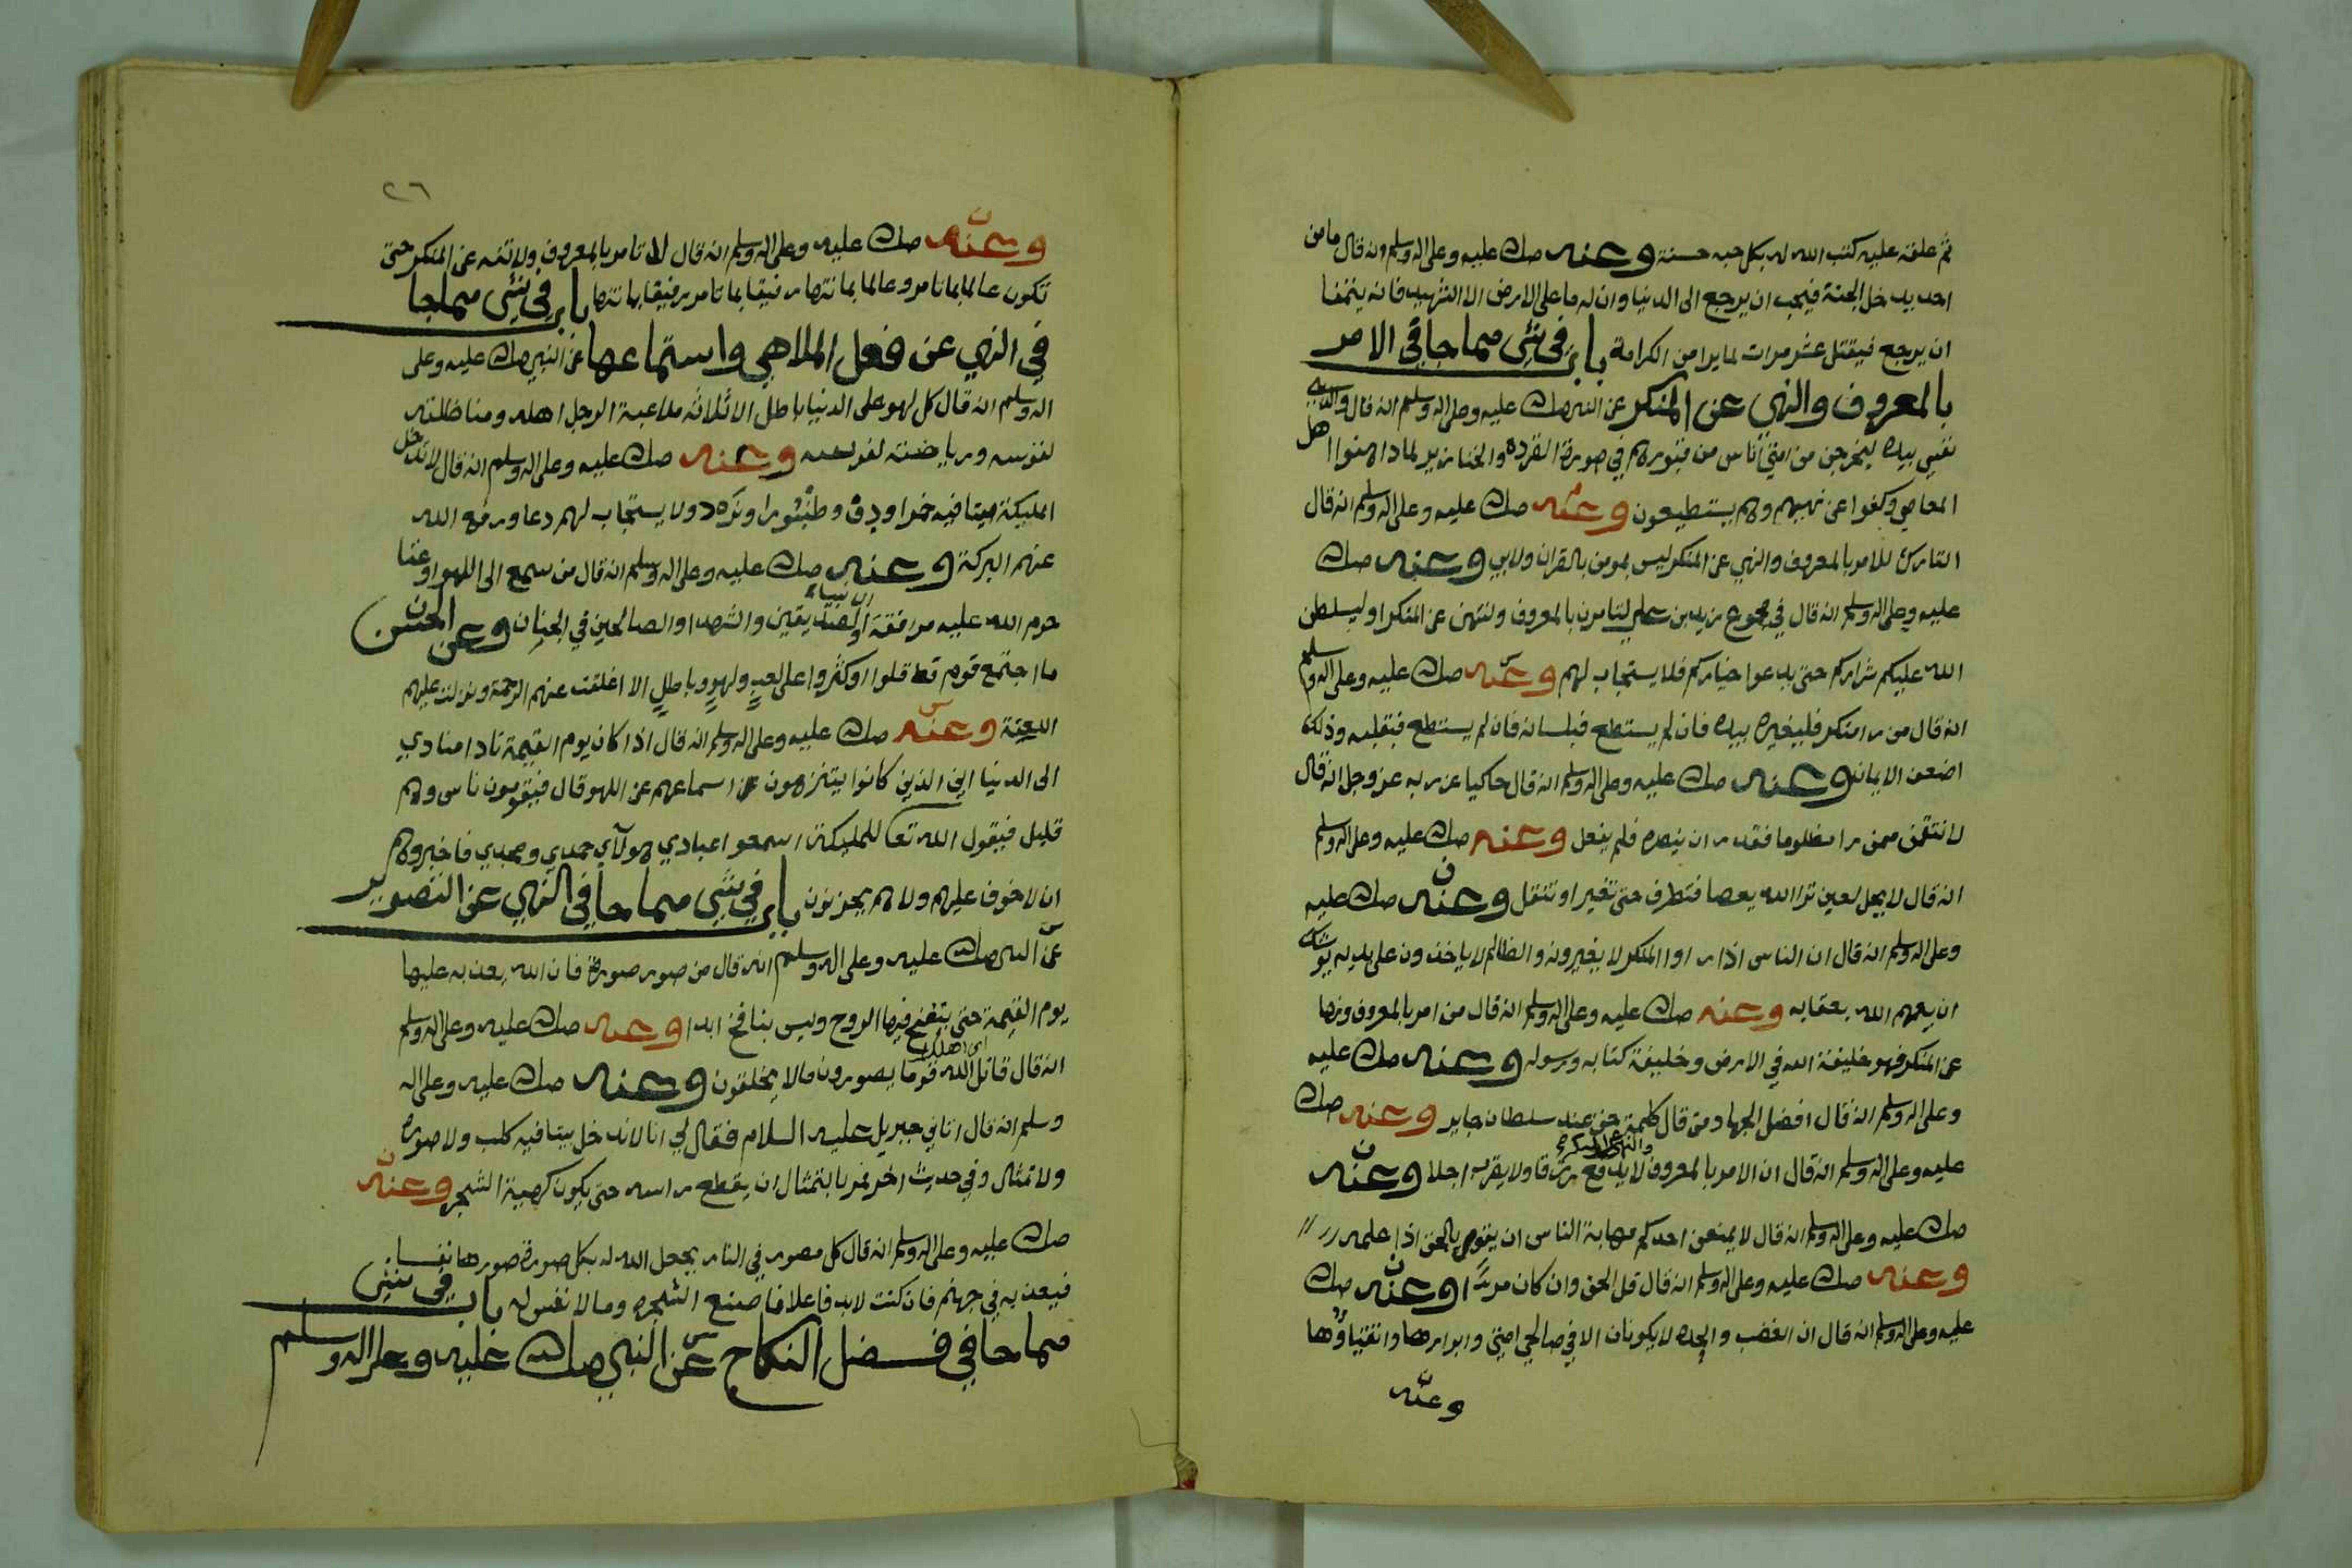 ثم علفه عليه كتب الله له بكل حبه حسنة وعنه صلى عليه وعلى اله وسلم انه قال ما من
احد يدخل الجنة فيحب ان يرجع الى الدنيا وان له ما على الارض الا الشهيد فانه يتمنا
ان يرجع فيقتل عشر مرات لما يرا من الكرامة باب في شي مما جا في الامر
بالمعروف والنهي عن المنكر عن النبي صلى عليه وعلى اله وسلم انه قال والذي
نفسي بيده ليخرجن من امتي اناس من قبورهم في صورة القرده والخنازير لما داهنوا اهل
المعاصي وكفوا عن نهيهم وهم يستطيعون وعنه صلى عليه وعلى اله وسلم انه قال
التارك للامر بالمعروف والنهي عن المنكر ليس بمومن بالقران ولا بي وعنه صلى
عليه وعلى اله وسلم انه قال في مجموع زيد بن علي لتامرن بالمعروف ولتنهن عن المنكر او ليسلطن
الله عليكم شراركم حتى يدعوا خياركم فلا يستجاب لهم وعنه صلى عليه وعلى اله وسلم
انه قال من را منكر فليغيره بيده فان لم يستطع فبلسانه فان لم يستطع فبقلبه وذلك
اضعف الايمان وعنه صلى عليه وعلى اله وسلم انه قال حاكيا عن ربه عز وجل انه قال
لانتقمن ممن را مظلوما فقدر ان ينصره فلم يفعل وعنه صلى عليه وعلى اله وسلم
انه قال لا يحل لعين ترا الله يعصا فتطرف حتى تغير او تنتقل وعنه صلى عليه
وعلى اله وسلم انه قال ان الناس اذا راوا المنكر لا يغيرونه والظالم لا ياخذون على يديه يوشك
ان يعمهم الله بعقابه وعنه صلى عليه وعلى اله وسلم انه قال من امر بالمعروف ونها
عن المنكر فهو خليفة الله في الارض وخليفة كتابه ورسوله وعنه صلى عليه
وعلى اله وسلم انه قال افضل الجهاد من قال كلمة حق عند سلطان جاير وعنه صلى
والنهي عن المنكر
عليه وعلى اله وسلم انه قال ان الامر بالمعروف لا يدفع رزقا ولا يقرب اجلا وعنه
صلى عليه وعلى اله وسلم انه قال لا يمنعن احدكم مهابة الناس ان يقوم بالحق اذا علمه
وعنه صلى عليه وعلى اله وسلم انه قال قل الحق وان كان مرا وعنه صلى
عليه وعلى اله وسلم انه قال ان الغضب والحده لا يكونان الا في صالحي امتي وابرارها واتقياؤها
وعنه
٢٦
وعنه صلى عليه وعلى اله وسلم انه قال لا تامر بالمعروف ولا تنه عن المنكر حتى
تكون عالما بما تامر وعالما بما تنها رفيقا بما تامر رفيقا بما تنها باب في شي مما جا
في النهي عن فعل الملاهي واستماعها عن النبي صلى عليه وعلى
اله وسلم انه قال كل لهو على الدنيا باطل الا ثلاثه ملاعبة الرجل اهله ومناضلته
لقوسه ورياضته لفرسه وعنه صلى عليه وعلى اله وسلم انه قال لا تدخل
المليكة بيتا فيه خمرا ودف وطنبورا ونرد ولا يستجاب لهم دعا ورفع الله
عنهم البركة وعنه صلى عليه وعلى اله وسلم انه قال من سمع الى اللهو او غنا
الانبياء
حرم الله عليه مرافقة والصديقين والشهدا والصالحين في الجنان وعن الحسن
ما اجتمع قوم قط قلوا او كثروا على لعبٍ ولهوٍ وباطلٍ الا اغلقت عنهم الرحمة ونزلت عليهم
اللعنة وعنه صلى عليه وعلى اله وسلم انه قال اذا كان يوم القيمة نادا منادي
الى الدنيا اين الذين كانوا ينزهون اسماعهم عن اللهو قال فيقومون ناس وهم
قليل فيقول الله تعا للمليكة اسمعوا عبادي هولآي حمدي ومجدي فاخبروهم
ان لا خوف عليهم ولا هم يحزنون باب في شي مما جا في النهي عن التصوير
عن النبي صلى عليه وعلى اله وسلم انه قال من صور صورة فان الله يعذبه عليها
يوم القيمة حتى ينفخ فيها الروح وليس بنافخ ابدا وعنه صلى عليه وعلى اله وسلم
اي اهلك
انه قال قاتل الله قوما يصورون مالا يخلقون وعنه صلى عليه وعلى اله
وسلم انه قال اتاني جبريل عليه السلام فقال لي انا لا ندخل بيتا فيه كلب ولا صورة
ولا تمثال وفي حديث اخر فمر بالتمثال ان يقطع راسه حتى يكون كهيئة الشجر وعنه
صلى عليه وعلى اله وسلم انه قال كل مصور في النار يجعل الله له بكل صورة صورها نفسا
فيعذبه في جهنم فان كنت لابد فاعلا فاصنع الشجره ومالا نفس له باب في شي
مما جا في فضل النكاح عن النبي صلى عليه وعلى اله وسلم